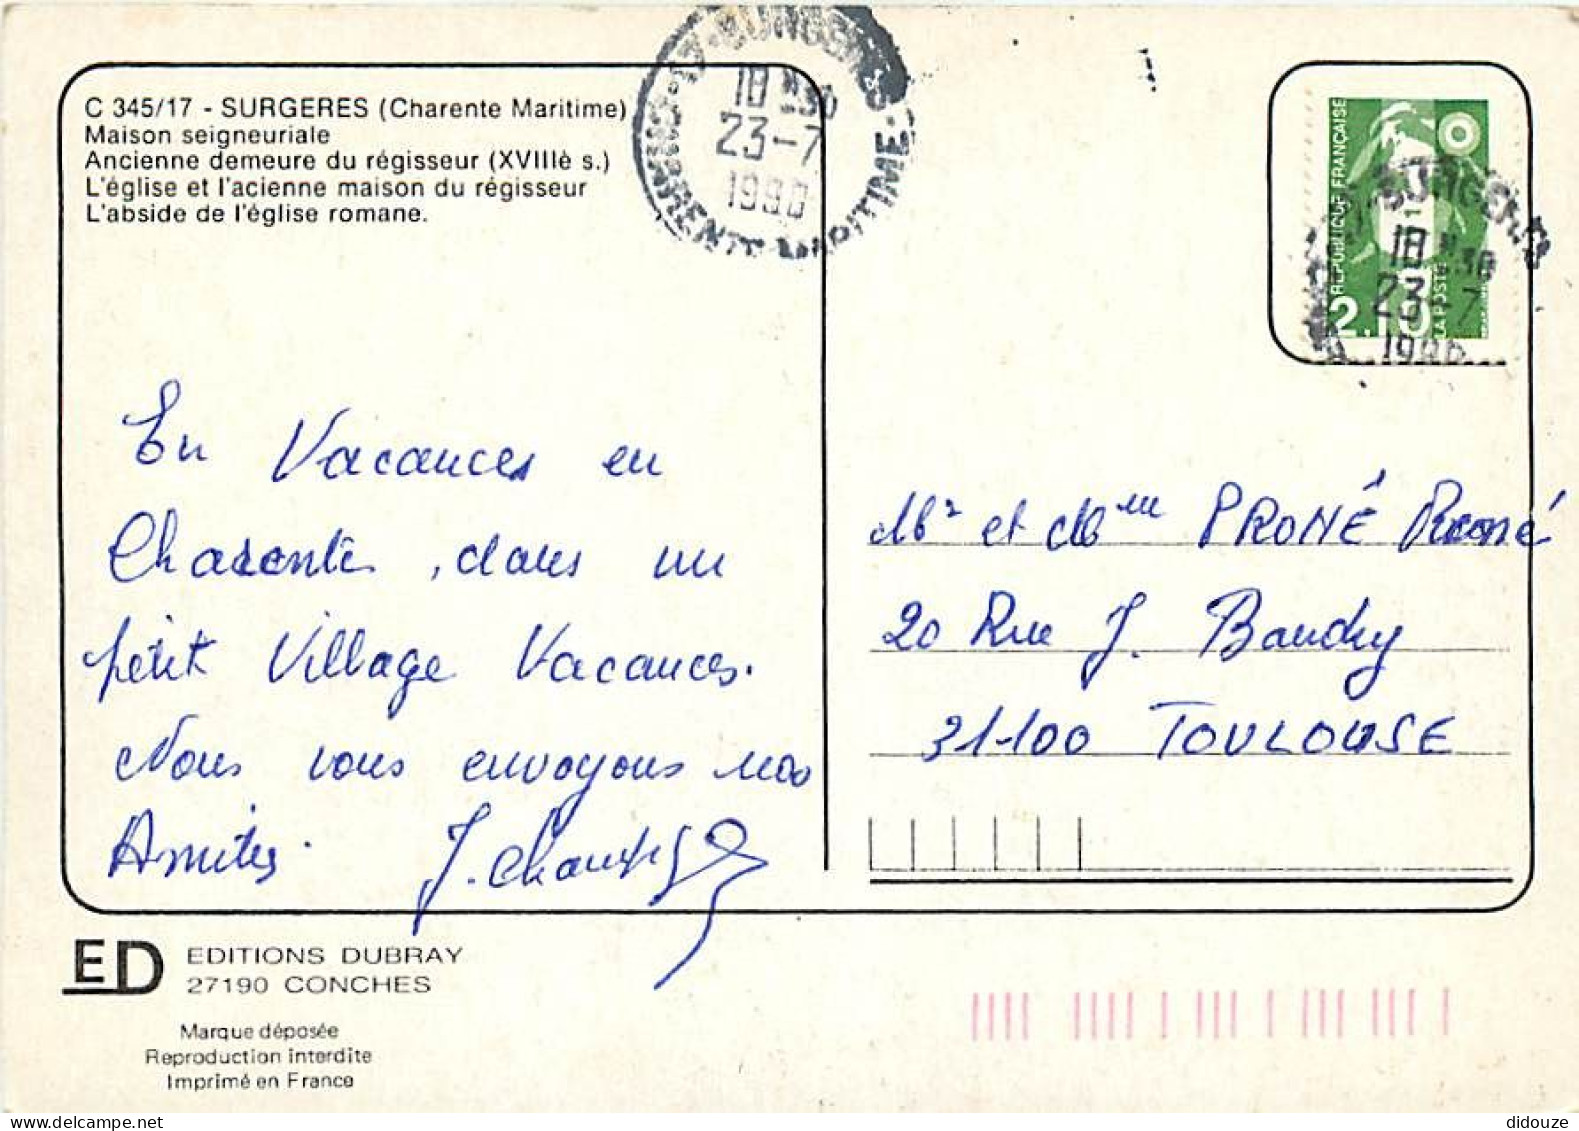 C 345/17 - SURGERES (Charente Maritime)
Maison seigneuriale
Ancienne demeure du régisseur (XVIIIè s.)
L'église et l'acienne maison du régisseur
L'abside de l'église romane.
17-SURGERES
18 H30
23-7
1990
CHARENTE-MARITIME
RÉPUBLIQUE FRANÇAISE
2,10
LA POSTE
SURGERES
18 H30
23-7
1990
En Vacances en
Charente, dans un
petit Village Vacances.
Nous vous envoyons nos
Amitiés.
Mr et Mme PRONÉ René
20 Rue J. Baudry
31100 TOULOUSE
ED
EDITIONS DUBRAY
27190 CONCHES
Marque déposée
Reproduction interdite
Imprimé en France
didouze